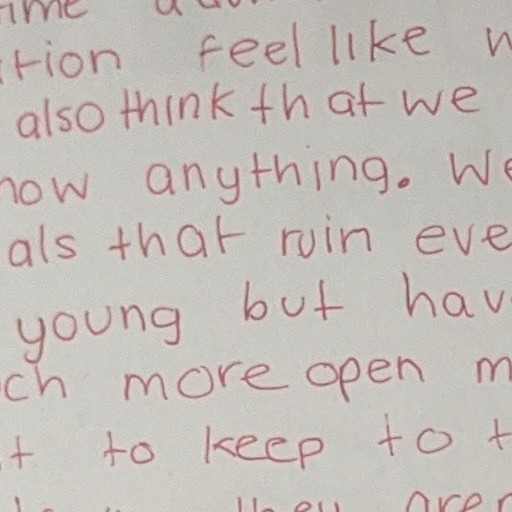 tion feel like
also think that we
now anything. We
als that ruin eve
young but hav
ch more open m
t to keep to t